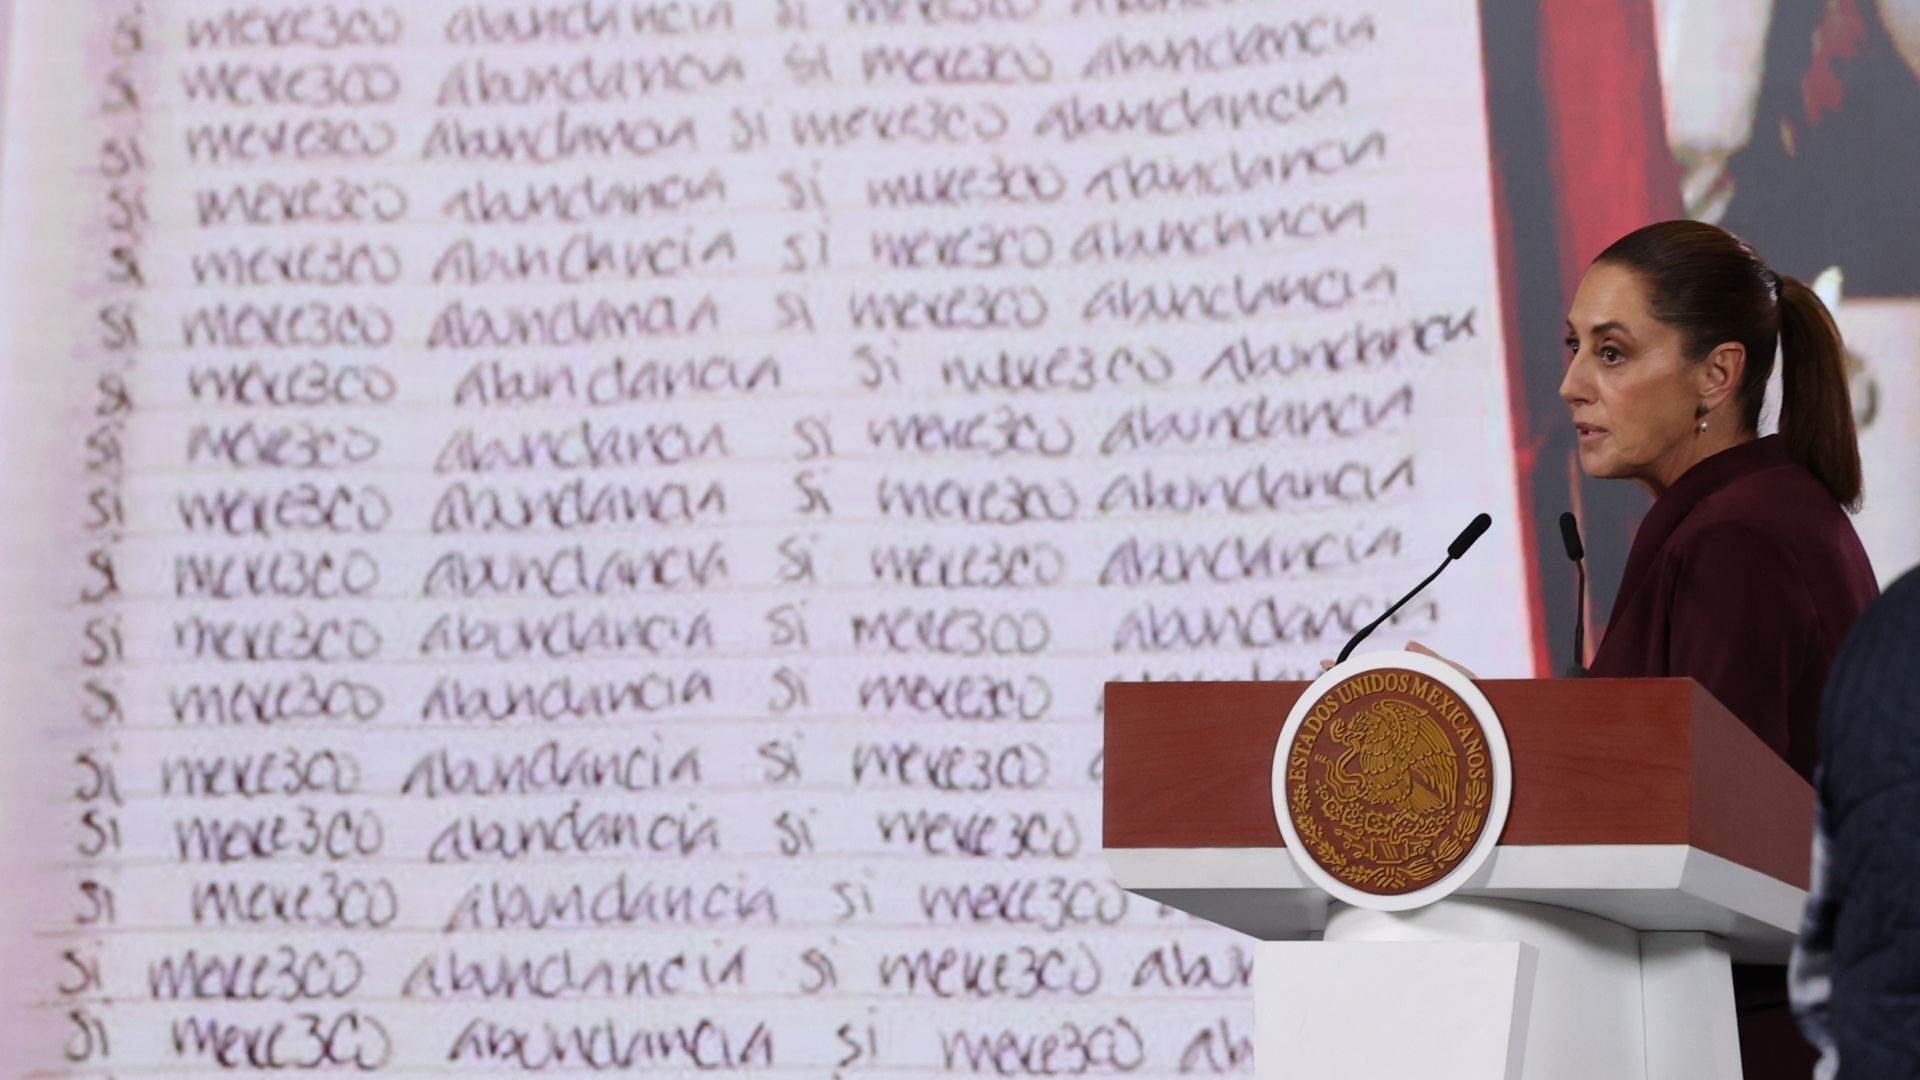 si mere3co abundancia si mere3co abundancia
si mere3co abundancia si mere3co abundancia
si mere3co abundancia si mere3co abundancia
si mere3co abundancia si mere3co abundancia
si mere3co abundancia si mere3co abundancia
si mere3co abundancia si mere3co abundancia
si mere3co abundancia si mere3co abundancia
si mere3co abundancia si mere3co abundancia
si mere3co abundancia si mere3co abundancia
si mere3co abundancia si mere3co abundancia
si mere3co abundancia si mere3co abundancia
si mere3co abundancia si mere3co
si mere3co abundancia si mere3co
si mere3co abundancia si mere3co
si mere3co abundancia si mere3co
si mere3co abundancia si mere3co abun
si mere3co abundancia si mere3co ab
ESTADOS UNIDOS MEXICANOS